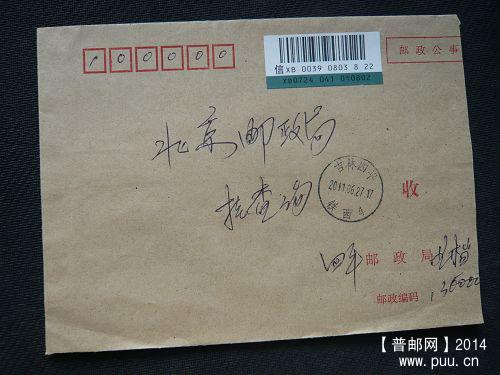 100000
邮政公事
信XB 0039 0803 8 22
XB0724 041 010802
北京邮政局
挂查询
收
吉林四平
2011.06.27.17
铁西4
四平邮政局
邮政编码
136000
【普邮网】2014
www.puu.cn